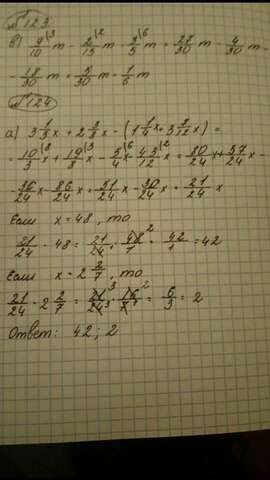 №123
в) 9/10 m - 2/15 m - 3/5 m = 28/30 m - 4/30 m -
- 18/30 m = 5/30 m = 1/6 m
№124
а) 3 1/3 x + 2 3/8 x - (1 1/4 x + 3 7/12 x) =
= 10/3 x + 19/8 x - 5/4 x - 43/12 x = 80/24 x + 57/24 x -
- 30/24 x - 86/24 x = 51/24 x - 30/24 x = 21/24 x
Если x = 48, то
21/24 · 48 = 21/24 · 48/1 = 42/1 = 42
Если x = 2 2/7, то
21/24 · 2 2/7 = 21/24 · 16/7 = 6/3 = 2
Ответ: 42; 2